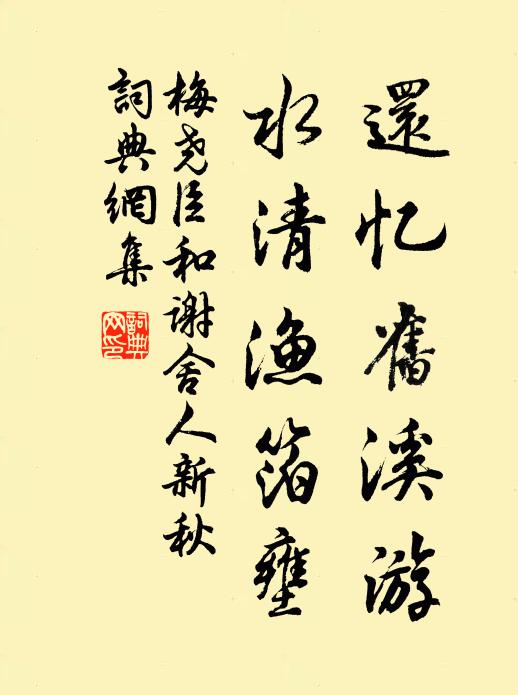 還忆舊溪游
水清漁箔壅
梅尧臣和谢舍人新秋
詞典網集
詞典
网印